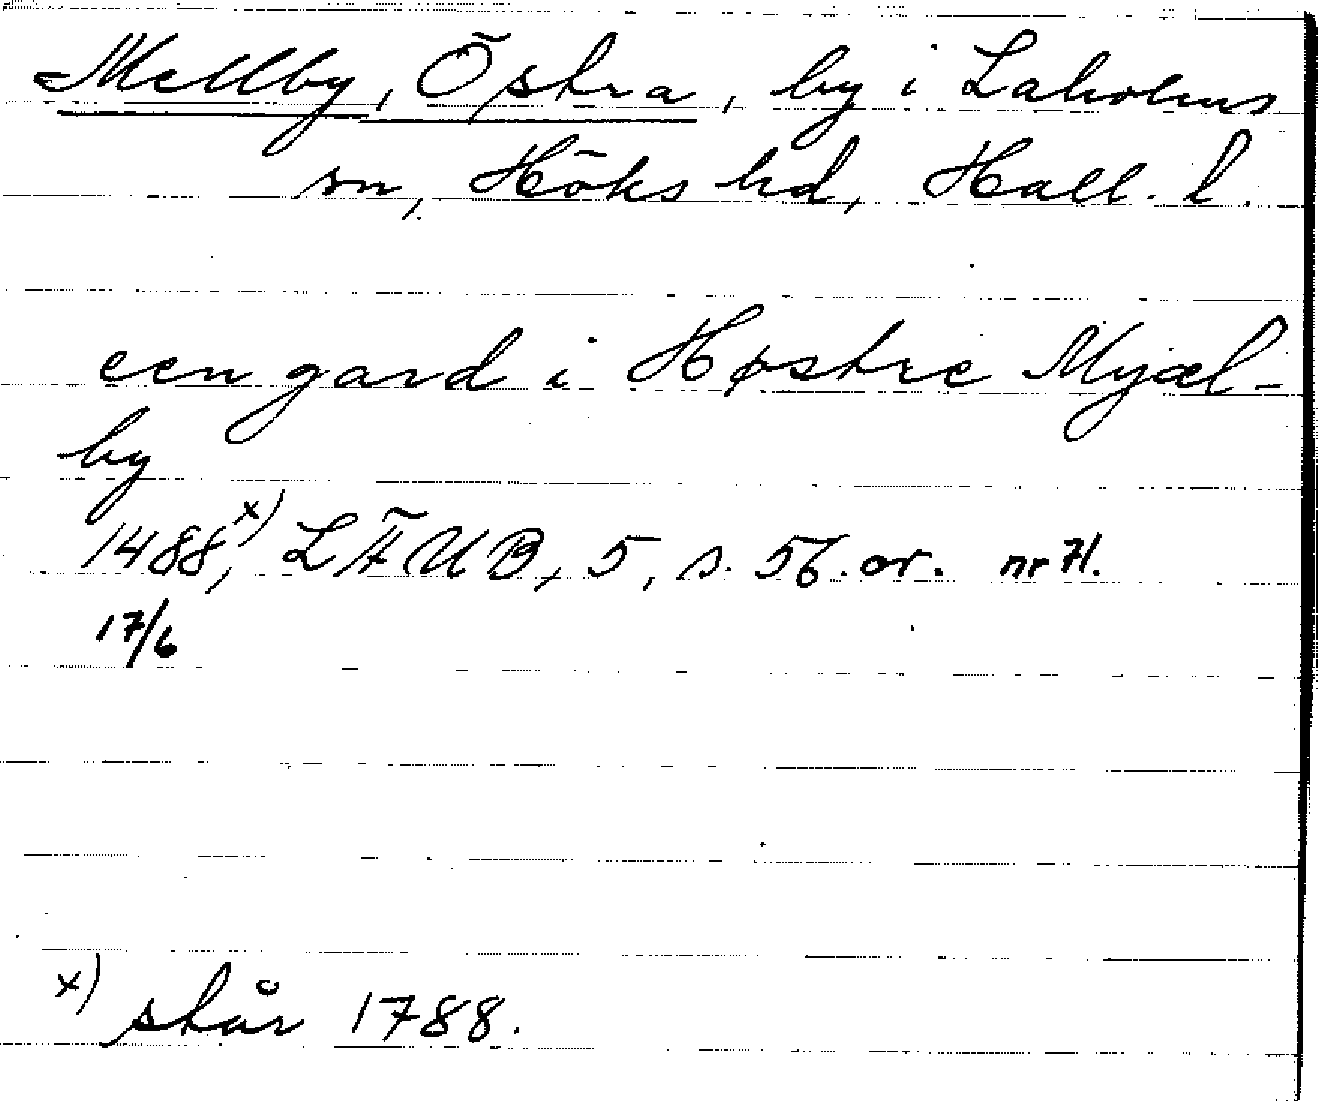 Mellby, Östra, by i Laholms
sn, Höks hd, Hall. l.
een gard i Høstre Mjæl-
by
1488,x) LÄUB, 5, s. 56. or. nr 71.
17/6
x) står 1788.